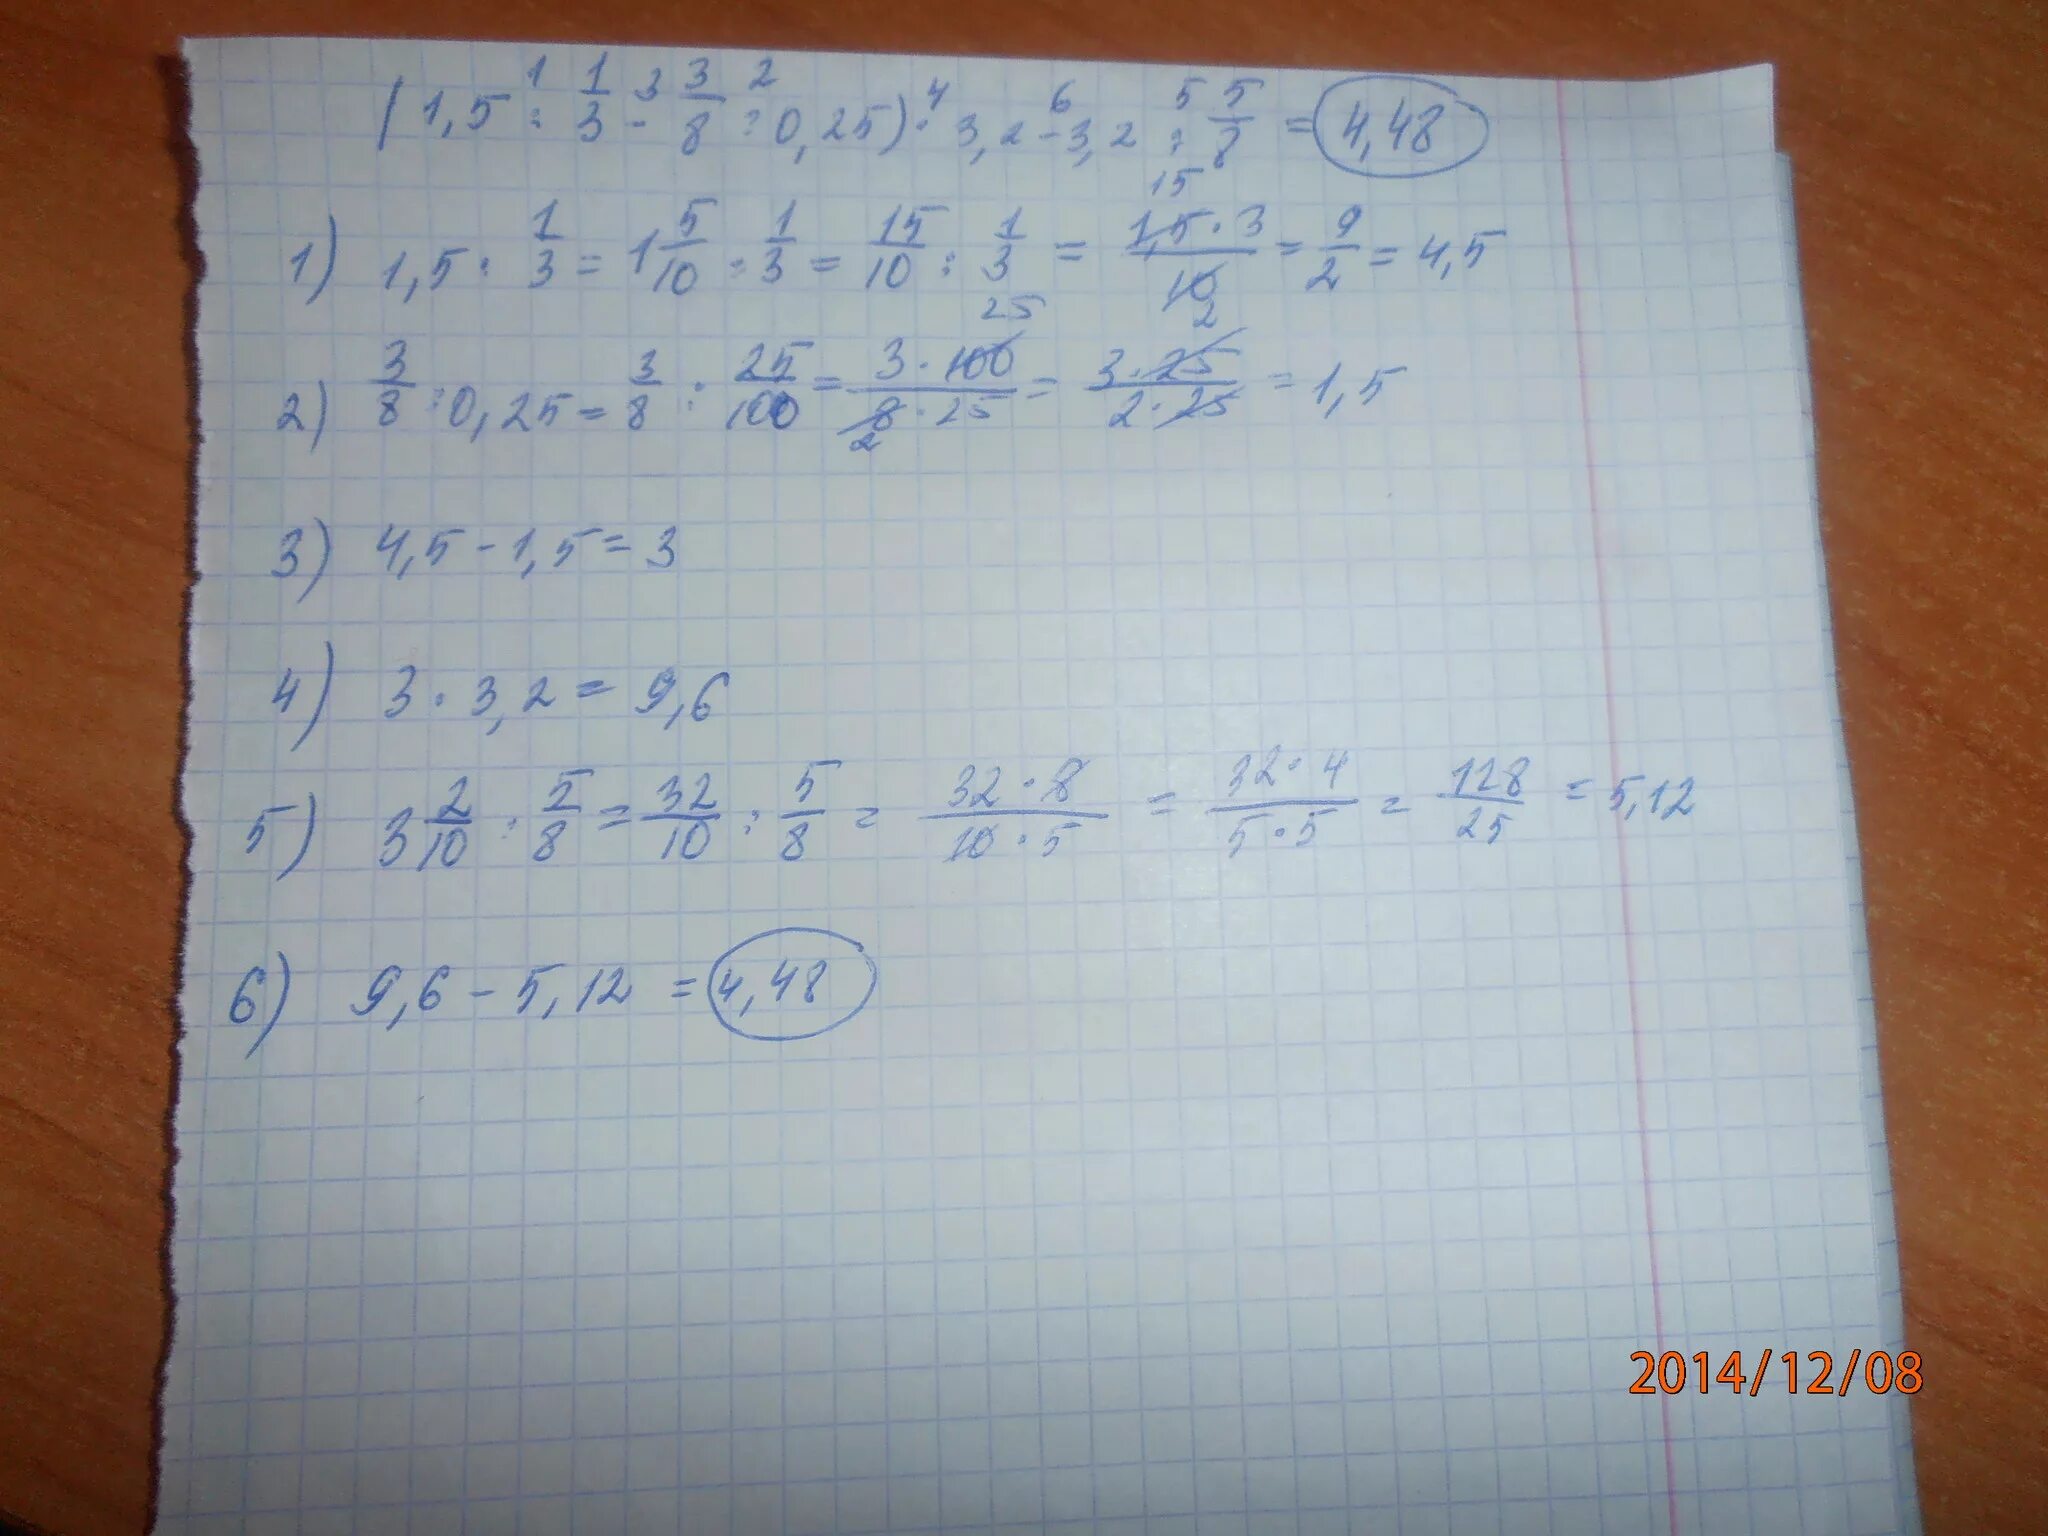 (1,5 :¹ 1/3 -³ 3/8 :² 0,25) ·⁴ 3,2 -⁶ 3,2 :⁵ 5/8 = 4,48
1) 1,5 : 1/3 = 1 5/10 : 1/3 = 15/10 : 1/3 = 15 1,5 · 3 / 10 2 = 9/2 = 4,5
2) 3/8 : 0,25 = 3/8 : 25/100 = 3 · 100 25 / 8 2 · 25 = 3 · 25 / 2 · 25 = 1,5
3) 4,5 - 1,5 = 3
4) 3 · 3,2 = 9,6
5) 3 2/10 : 5/8 = 32/10 : 5/8 = 32 · 8 / 10 · 5 = 32 · 4 / 5 · 5 = 128/25 = 5,12
6) 9,6 - 5,12 = 4,48
2014/12/08